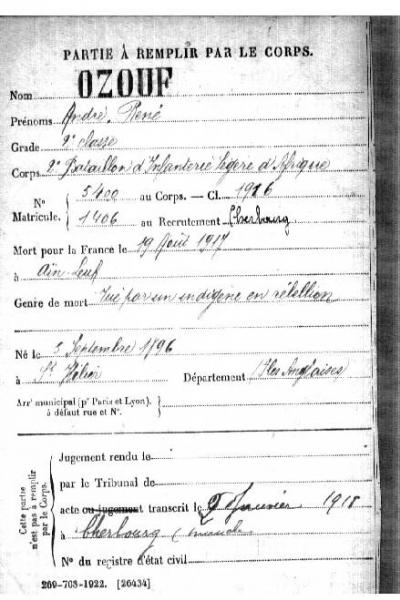 PARTIE À REMPLIR PAR LE CORPS.
Nom OZOUF
Prénoms André, René
Grade 2e classe
Corps 2e Bataillon d'Infanterie légère d'Afrique
N° Matricule. { 5400 au Corps. — Cl. 1916
1406 au Recrutement Cherbourg
Mort pour la France le 19 Août 1917
à Aïn Leuf
Genre de mort Tué par un indigène en rébellion
Né le 3 Septembre 1896
à St Hélier Département Iles Anglaises
Arrt municipal (pr Paris et Lyon),
à défaut rue et N°.
Cette partie n'est pas à remplir par le Corps.
Jugement rendu le
par le Tribunal de
acte ou jugement transcrit le Janvier 1918
à Cherbourg (Manche
N° du registre d'état civil
269-708-1922. [26434]